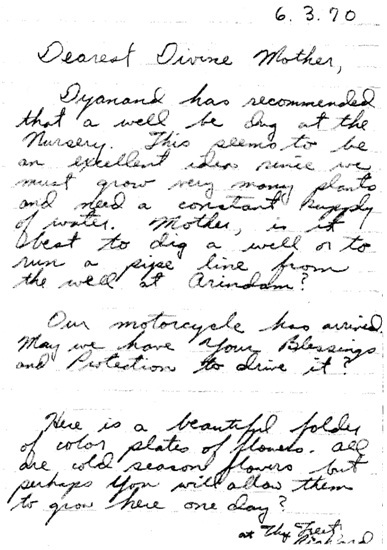 6.3.70
Dearest Divine Mother,
Dyanand has recommended
that a well be dug at the
Nursery. This seems to be
an excellent idea since we
must grow very many plants
and need a constant supply
of water. Mother, is it
best to dig a well or to
run a pipe line from
the well at Arindam?
Our motorcycle has arrived.
May we have Your Blessings
and Protection to drive it?
Here is a beautiful folder
of color plates of flowers. All
are cold season flowers but
perhaps You will allow them
to grow here one day?
at Thy Feet
Richard